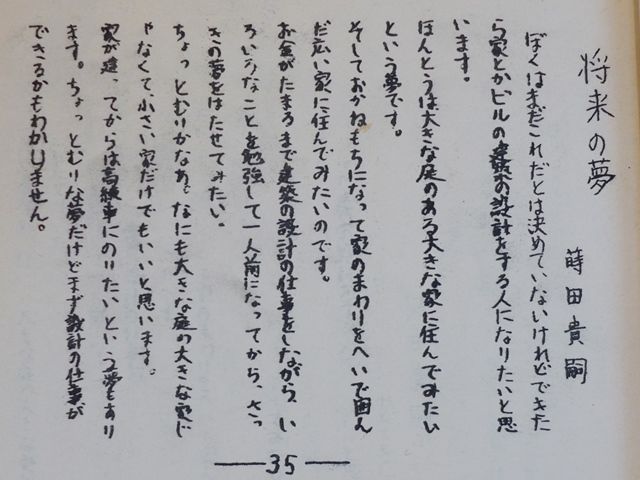 将来の夢
蒔田貴嗣
ぼくはまだこれだとは決めていないけれどできた
ら家とかビルの建築の設計をする人になりたいと思
います。
ほんとうは大きな庭のある大きな家に住んでみたい
という夢です。
そしておかねもちになって家のまわりをへいで囲ん
だ広い家に住んでみたいのです。
お金がたまるまで建築の設計の仕事をしながら、い
ろいろなことを勉強して一人前になってから、さっ
きの夢をはたせてみたい。
ちょっとむりかなあ。なにも大きな庭の大きな家じ
ゃなくて小さい家だけでもいいと思います。
家が建ってからは高級車にのりたいという夢もあり
ます。ちょっとむりな夢だけどまず設計の仕事が
できるかもわかりません。
35